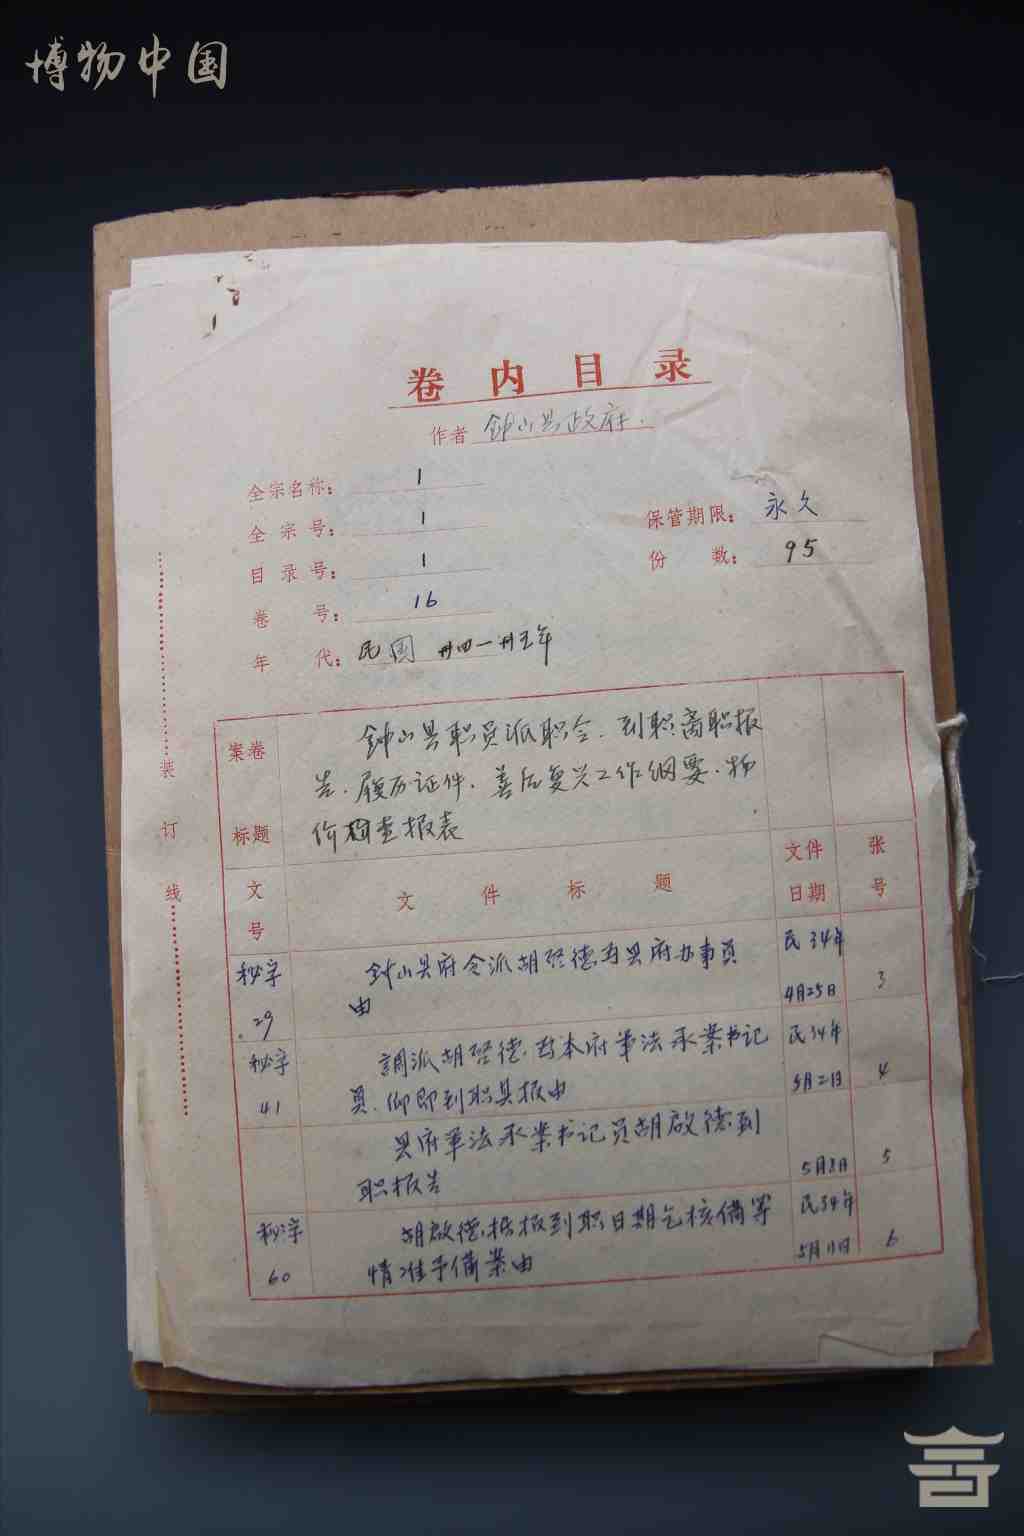 博物中国
卷内目录
作者 钟山县政府.
全宗名称: 1
全宗号: 1
保管期限: 永久
目录号: 1
份数: 95
卷号: 16
年代: 民国卅四一卅五年
案卷标题
钟山县职员派职令.到职离职报
告.履历证件.善后复兴工作纲要.物
价检查报表
文号
文件标题
文件日期
张号
秘字.29
钟山县府令派胡啓德为县府办事员
由
民34年4月25日
3
秘字41
調派胡啓德.为本府军法承案书记
員.仰即到职具报由
民34年5月2日
4
县府军法承案书记员胡啟德到
职报告
5月8日
5
秘字60
胡啟德.核报到职日期乞核備等
情准予備案由
民34年5月11日
6
装订线